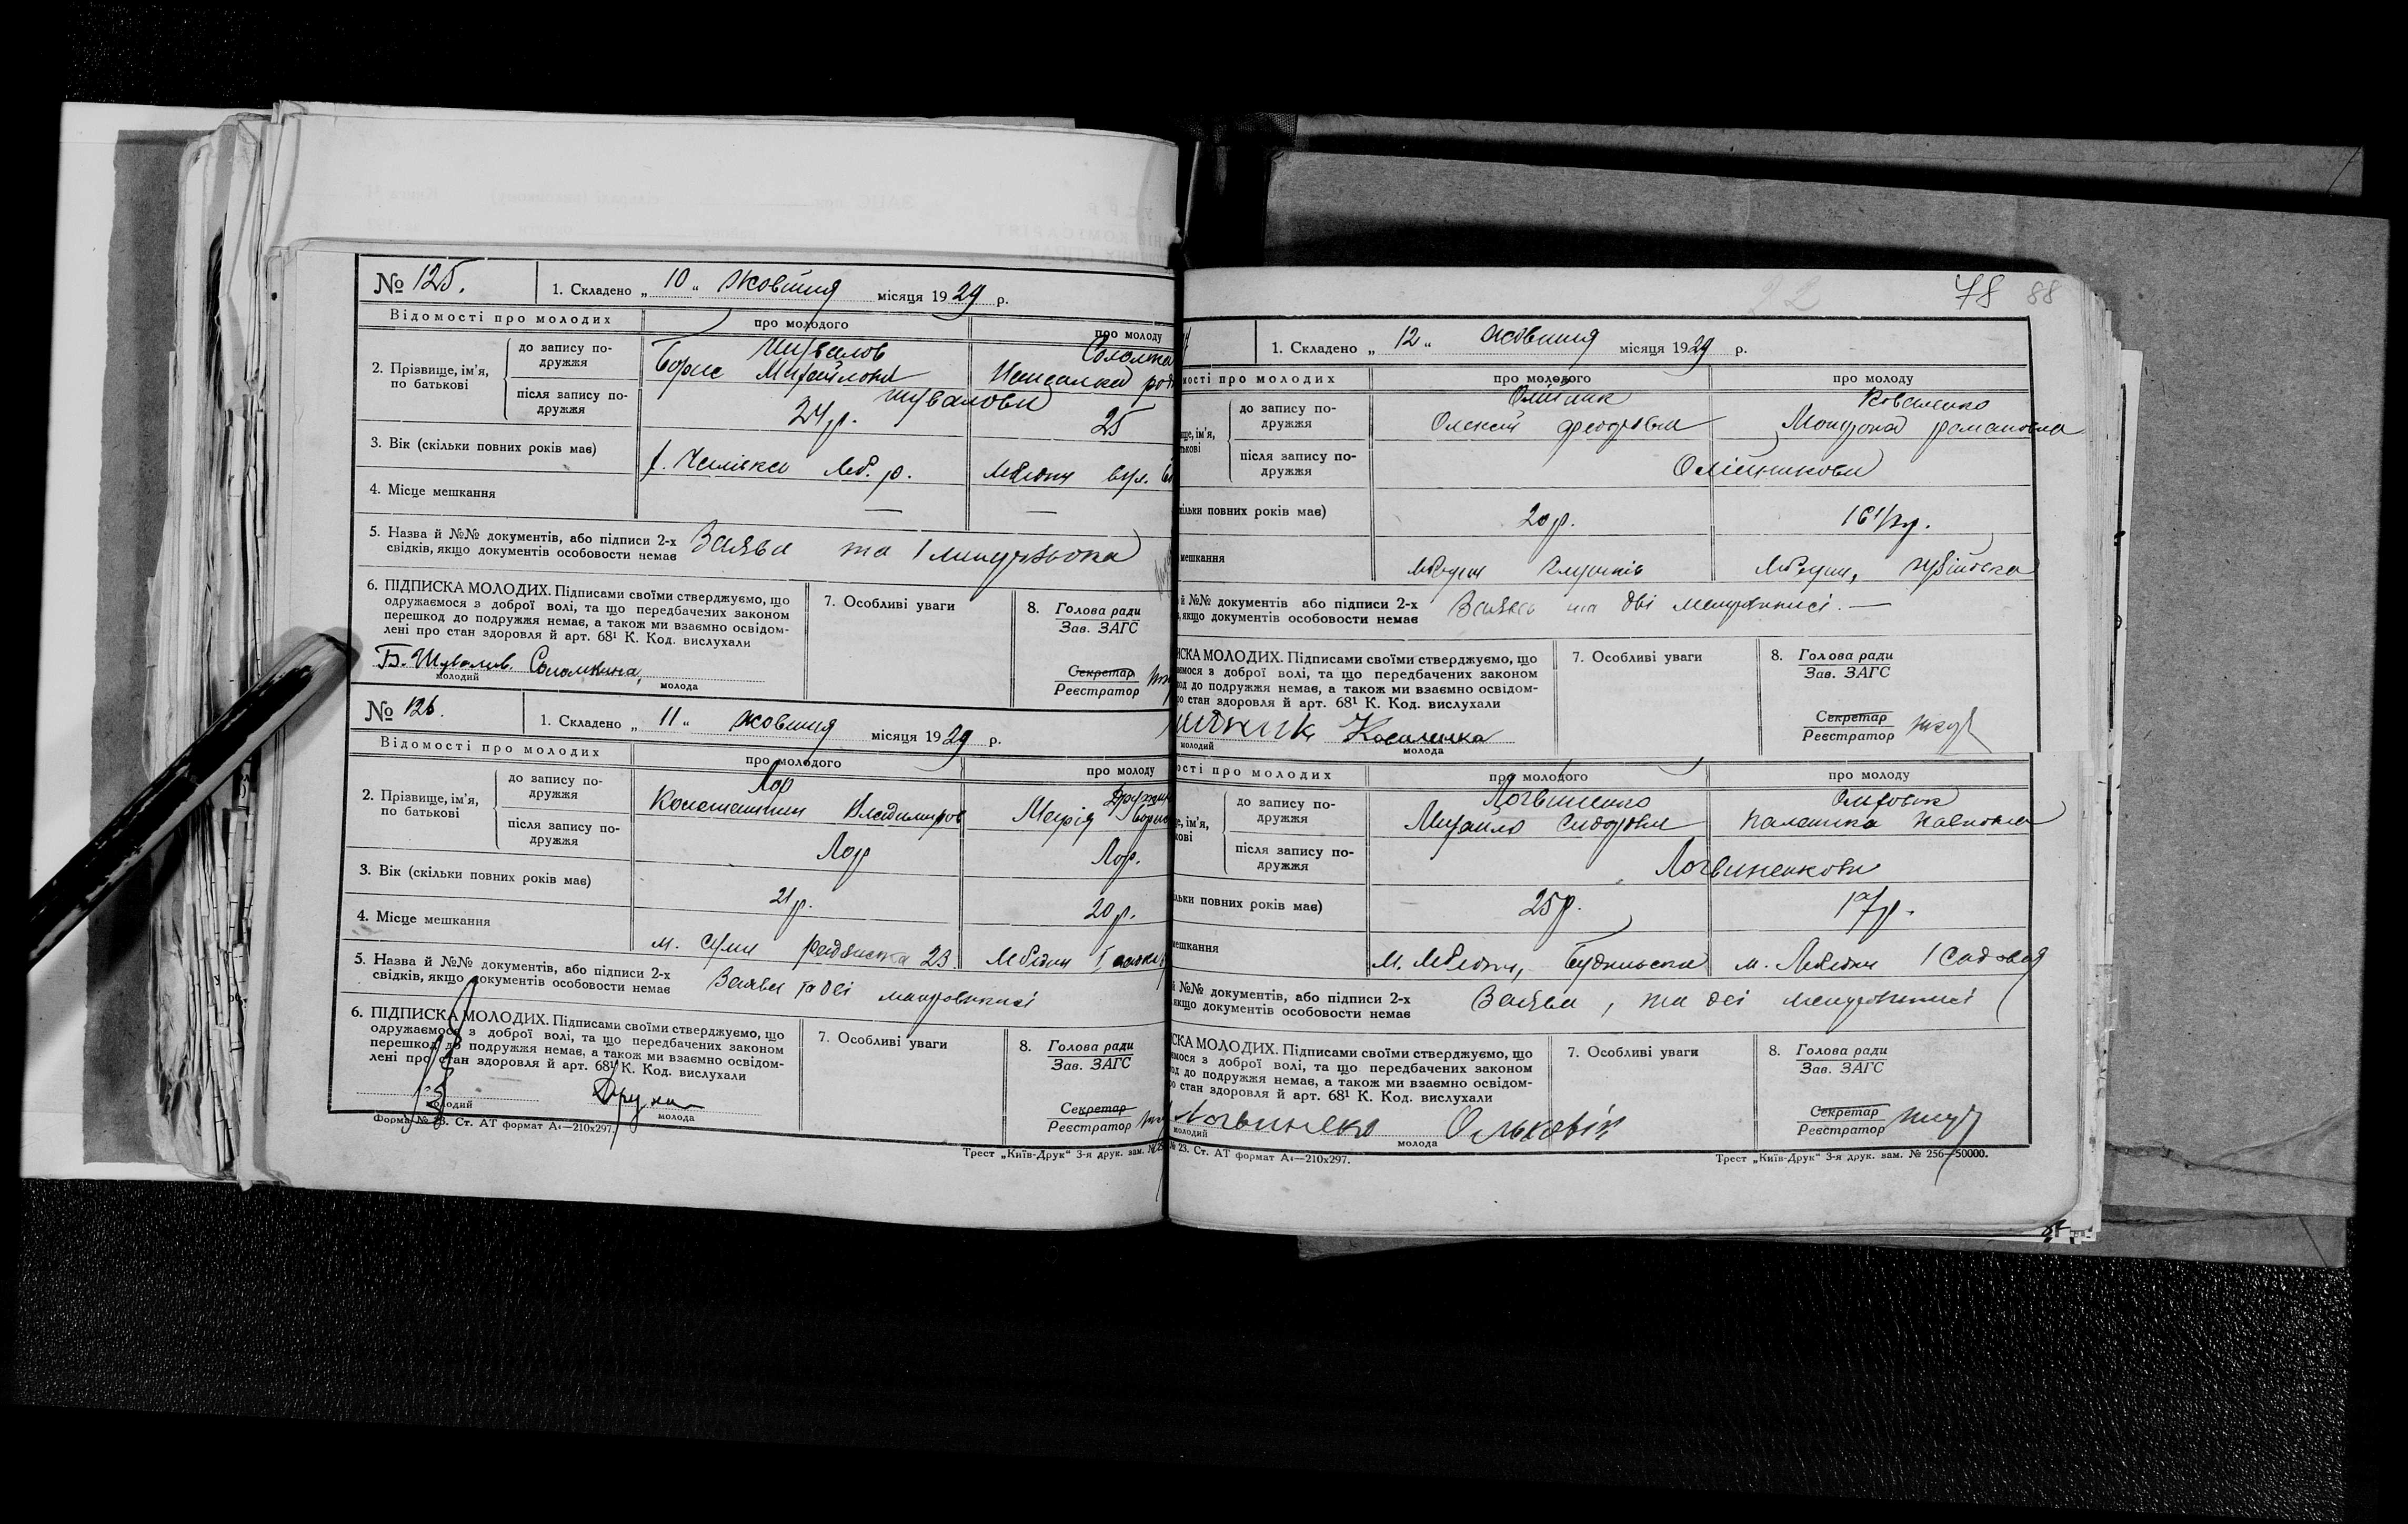 № 125.
1. Складено „ 10 “ жовтня місяця 1929 р.
Відомості про молодих
про молодого
про молоду
2. Прізвище, ім'я, по батькові
до запису подружжя
Шувалов
Борис Михайлович
після запису подружжя
Шувалови
3. Вік (скільки повних років має)
24 р.
25
4. Місце мешкання
Леб. р.
Лебедин вул.
5. Назва й №№ документів, або підписи 2-х
свідків, якщо документів особовости немає
Заява та 1
6. ПІДПИСКА МОЛОДИХ. Підписами своїми стверджуємо, що
одружаємося з доброї волі, та що передбачених законом
перешкод до подружжя немає, а також ми взаємно освідом-
лені про стан здоровля й арт. 68¹ К. Код. вислухали
Б. Шувалов. Соломкина,
молодий
молода
7. Особливі уваги
8. Голова ради
Зав. ЗАГС
Секретар
Реєстратор
№ 126.
1. Складено „ 11 “ жовтня місяця 1929 р.
Відомості про молодих
про молодого
про молоду
2. Прізвище, ім'я, по батькові
до запису подружжя
Лор
Константин Владимиров
Марія
після запису подружжя
Лор
Лор.
3. Вік (скільки повних років має)
21 р.
20 р.
4. Місце мешкання
м. Суми Радянська 23
Лебедин
5. Назва й №№ документів, або підписи 2-х
свідків, якщо документів особовости немає
Заява та дві
6. ПІДПИСКА МОЛОДИХ. Підписами своїми стверджуємо, що
одружаємося з доброї волі, та що передбачених законом
перешкод до подружжя немає, а також ми взаємно освідом-
лені про стан здоровля й арт. 68¹ К. Код. вислухали
молодий
молода
7. Особливі уваги
8. Голова ради
Зав. ЗАГС
Секретар
Реєстратор
Форма № 23. Ст. АТ формат А₄—210х297.
Трест „Київ-Друк“ 3-я друк. зам. №
78 88
1. Складено „ 12 “ жовтня місяця 1929 р.
про молодих
про молодого
про молоду
до запису подружжя
Олійник
Коваленко
Олексій Федорович
Мотрона Романовна
після запису подружжя
Олійникови
повних років має)
20 р.
16 1/2 р.
мешкання
Лебедин
Лебедин,
й №№ документів або підписи 2-х
якщо документів особовости немає
Заява та дві
МОЛОДИХ. Підписами своїми стверджуємо, що
з доброї волі, та що передбачених законом
до подружжя немає, а також ми взаємно освідом-
стан здоровля й арт. 68¹ К. Код. вислухали
Коваленка
молодий
молода
7. Особливі уваги
8. Голова ради
Зав. ЗАГС
Секретар
Реєстратор
про молодих
про молодого
про молоду
до запису подружжя
Логвиненко
Ольховик
Михайло Сидорович
Палашка Павловна
після запису подружжя
Логвиненкови
повних років має)
25 р.
17 р.
мешкання
м. Лебедин, Будильська
м. Лебедин 1 Садовая
№№ документів, або підписи 2-х
якщо документів особовости немає
Заява, та дві
МОЛОДИХ. Підписами своїми стверджуємо, що
з доброї волі, та що передбачених законом
до подружжя немає, а також ми взаємно освідом-
стан здоровля й арт. 68¹ К. Код. вислухали
Ольховік
молодий
молода
7. Особливі уваги
8. Голова ради
Зав. ЗАГС
Секретар
Реєстратор
№ 23. Ст. АТ формат А₄—210х297.
Трест „Київ-Друк“ 3-я друк. зам. № 256—50000.